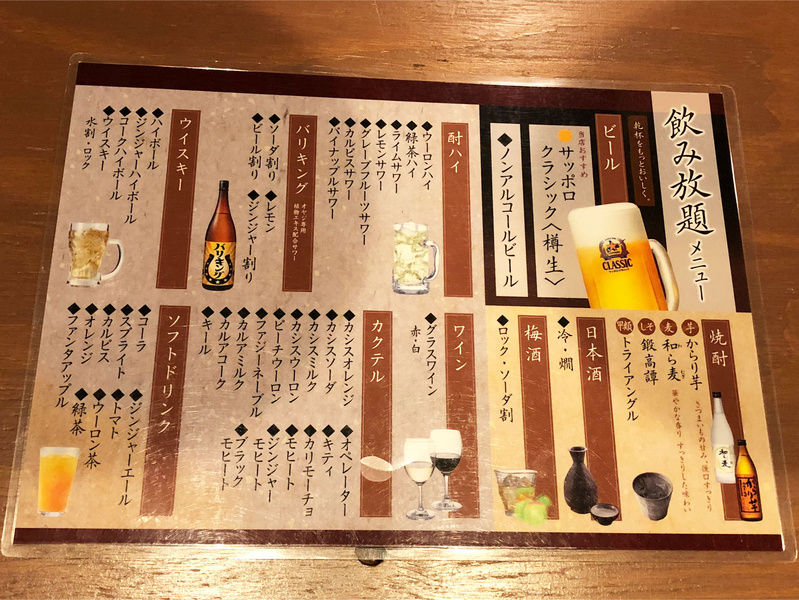 飲み放題 メニュー
乾杯をもっとおいしく。
ビール
当店おすすめ
サッポロ
クラシック〈樽生〉
◆ノンアルコールビール
CLASSIC
酎ハイ
◆ウーロンハイ
◆緑茶ハイ
◆ライムサワー
◆レモンサワー
◆グレープフルーツサワー
◆カルピスサワー
◆パイナップルサワー
バリキング
オヤジ専用
植物エキス配合サワー
◆ソーダ割り
◆ビール割り
◆レモン
◆ジンジャー割り
バリキング
ウイスキー
◆ハイボール
◆ジンジャーハイボール
◆コークハイボール
◆ウイスキー
水割・ロック
焼酎
芋 からり芋
さつまいもの甘み、後口すっきり
麦 和ら麦
華やかな香り すっきりした味わい
しそ 鍛高譚
甲類 トライアングル
和ら麦
日本酒
◆冷・燗
梅酒
◆ロック・ソーダ割
ワイン
◆グラスワイン
赤・白
カクテル
◆カシスオレンジ
◆カシスソーダ
◆カシスミルク
◆カシスウーロン
◆ピーチウーロン
◆ファジーネーブル
◆カルアミルク
◆カルアコーク
◆キール
◆オペレーター
◆キティ
◆カリモーチョ
◆モヒート
◆ジンジャー
モヒート
◆ブラック
モヒート
ソフトドリンク
◆コーラ
◆スプライト
◆カルピス
◆オレンジ
◆ファンタアップル
◆ジンジャーエール
◆トマト
◆ウーロン茶
◆緑茶